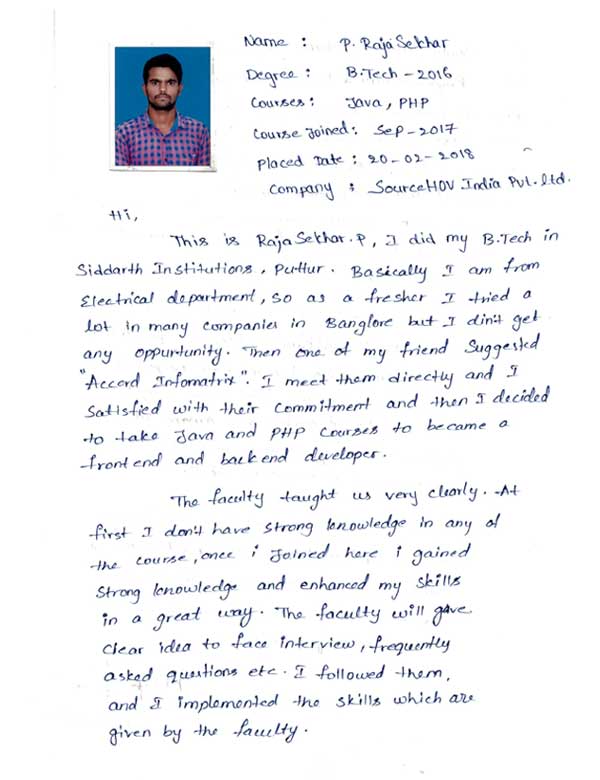 Name : P. Raja Sekhar
Degree : B.Tech - 2016
Courses : Java, PHP
Course Joined : Sep-2017
Placed Date : 20-02-2018
Company : SourceHOV India Pvt.ltd.
Hi,
This is Raja Sekhar.P, I did my B.Tech in
Siddarth Institutions, Puttur. Basically I am from
Electrical department, so as a fresher I tried a
lot in many companies in Banglore but I din't get
any oppurtunity. Then one of my friend Suggested
"Accord Infomatrix". I meet them directly and I
Satisfied with their Commitment and then I decided
to take Java and PHP Courses to became a
front end and backend developer.
The faculty taught us very clearly. At
first I don't have strong knowledge in any of
the course, once i Joined here i gained
Strong knowledge and enhanced my skills
in a great way. The faculty will gave
Clear idea to face interview, frequently
asked questions etc. I followed them,
and I implemented the skills which are
given by the faculty.